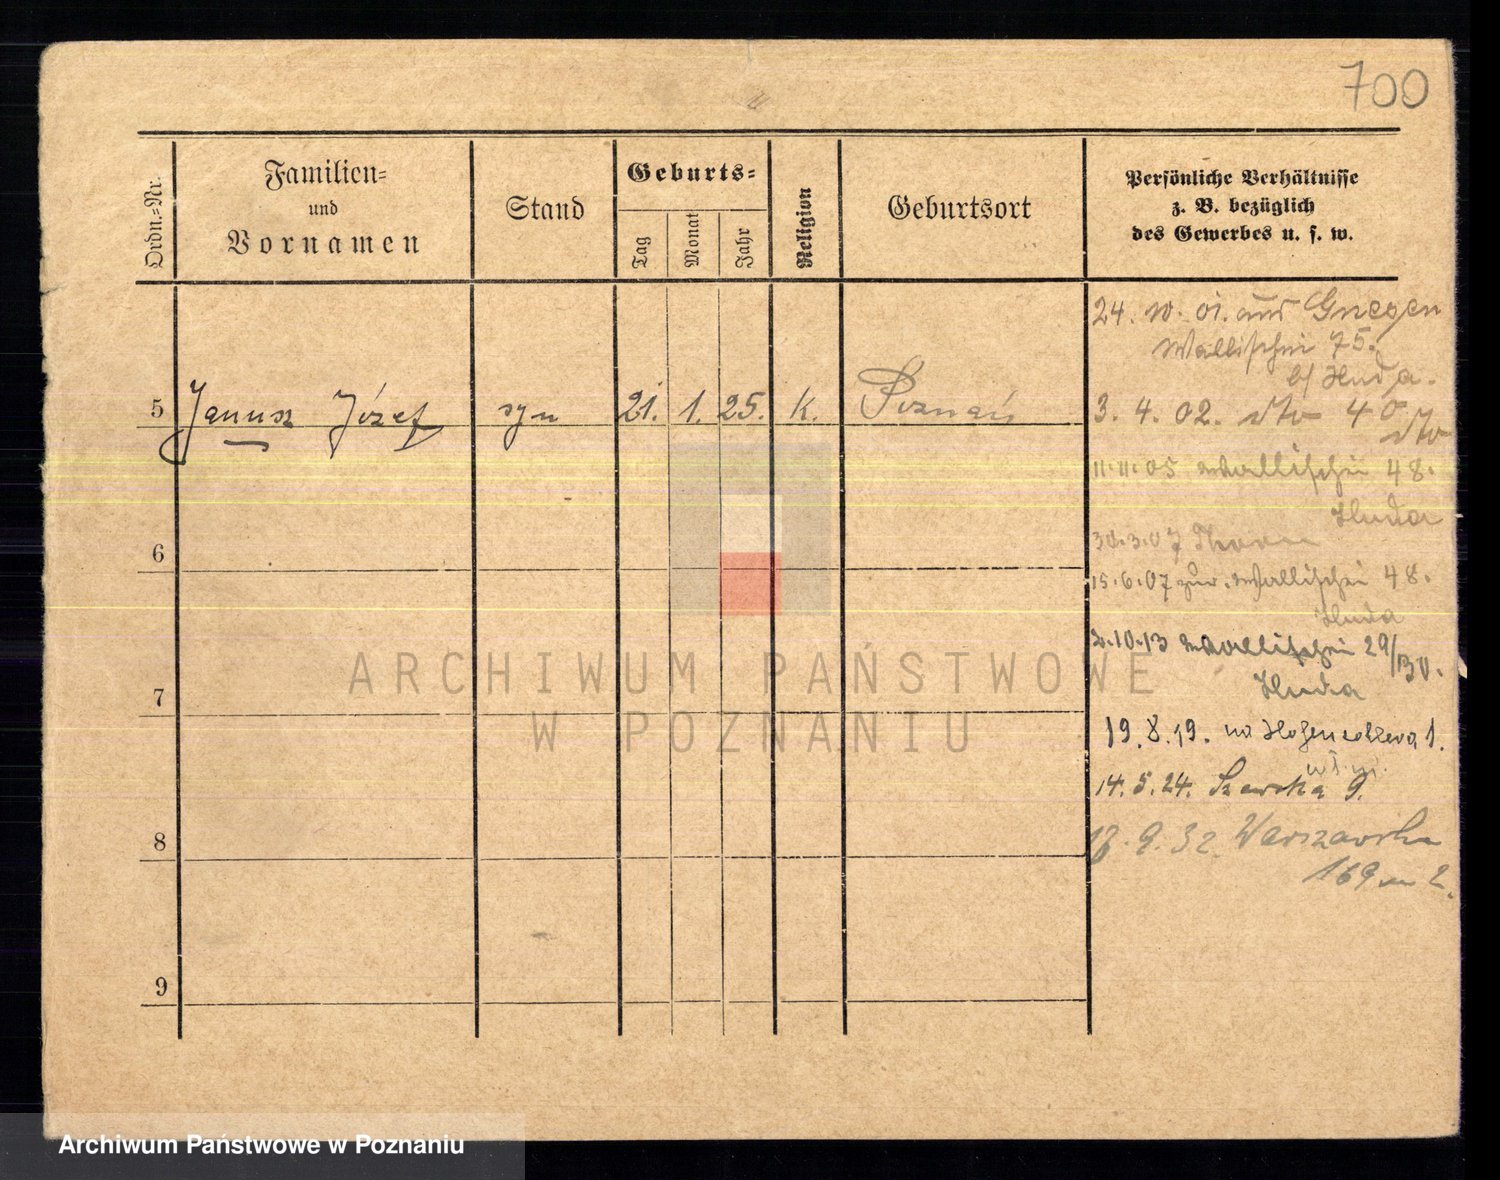 700
Ordn.=Nr.
Familien=
und
Vornamen
Stand
Geburts=
Tag
Monat
Jahr
Religion
Geburtsort
Persönliche Verhältnisse
z. B. bezüglich
des Gewerbes u. s. w.
24. 10. 01. aus Gnesen
Wallischei 75.
b/ Huda.
5 Janusz Józef syn 21. 1. 25. K. Poznań
3. 4. 02. dto 40 dto
11.11.05 Wallischei 48.
Huda
30.3.07 Thorn
6
15.6.07 zur. Wallischei 48.
Huda
2.10.13 Wallischei 29/30.
Huda
7
19.8.19. Hohenzollern 1.
14.5.24. Szewska 9.
8
9.32. Warszawska
169 m 2.
9
ARCHIWUM PAŃSTWOWE
W POZNANIU
Archiwum Państwowe w Poznaniu